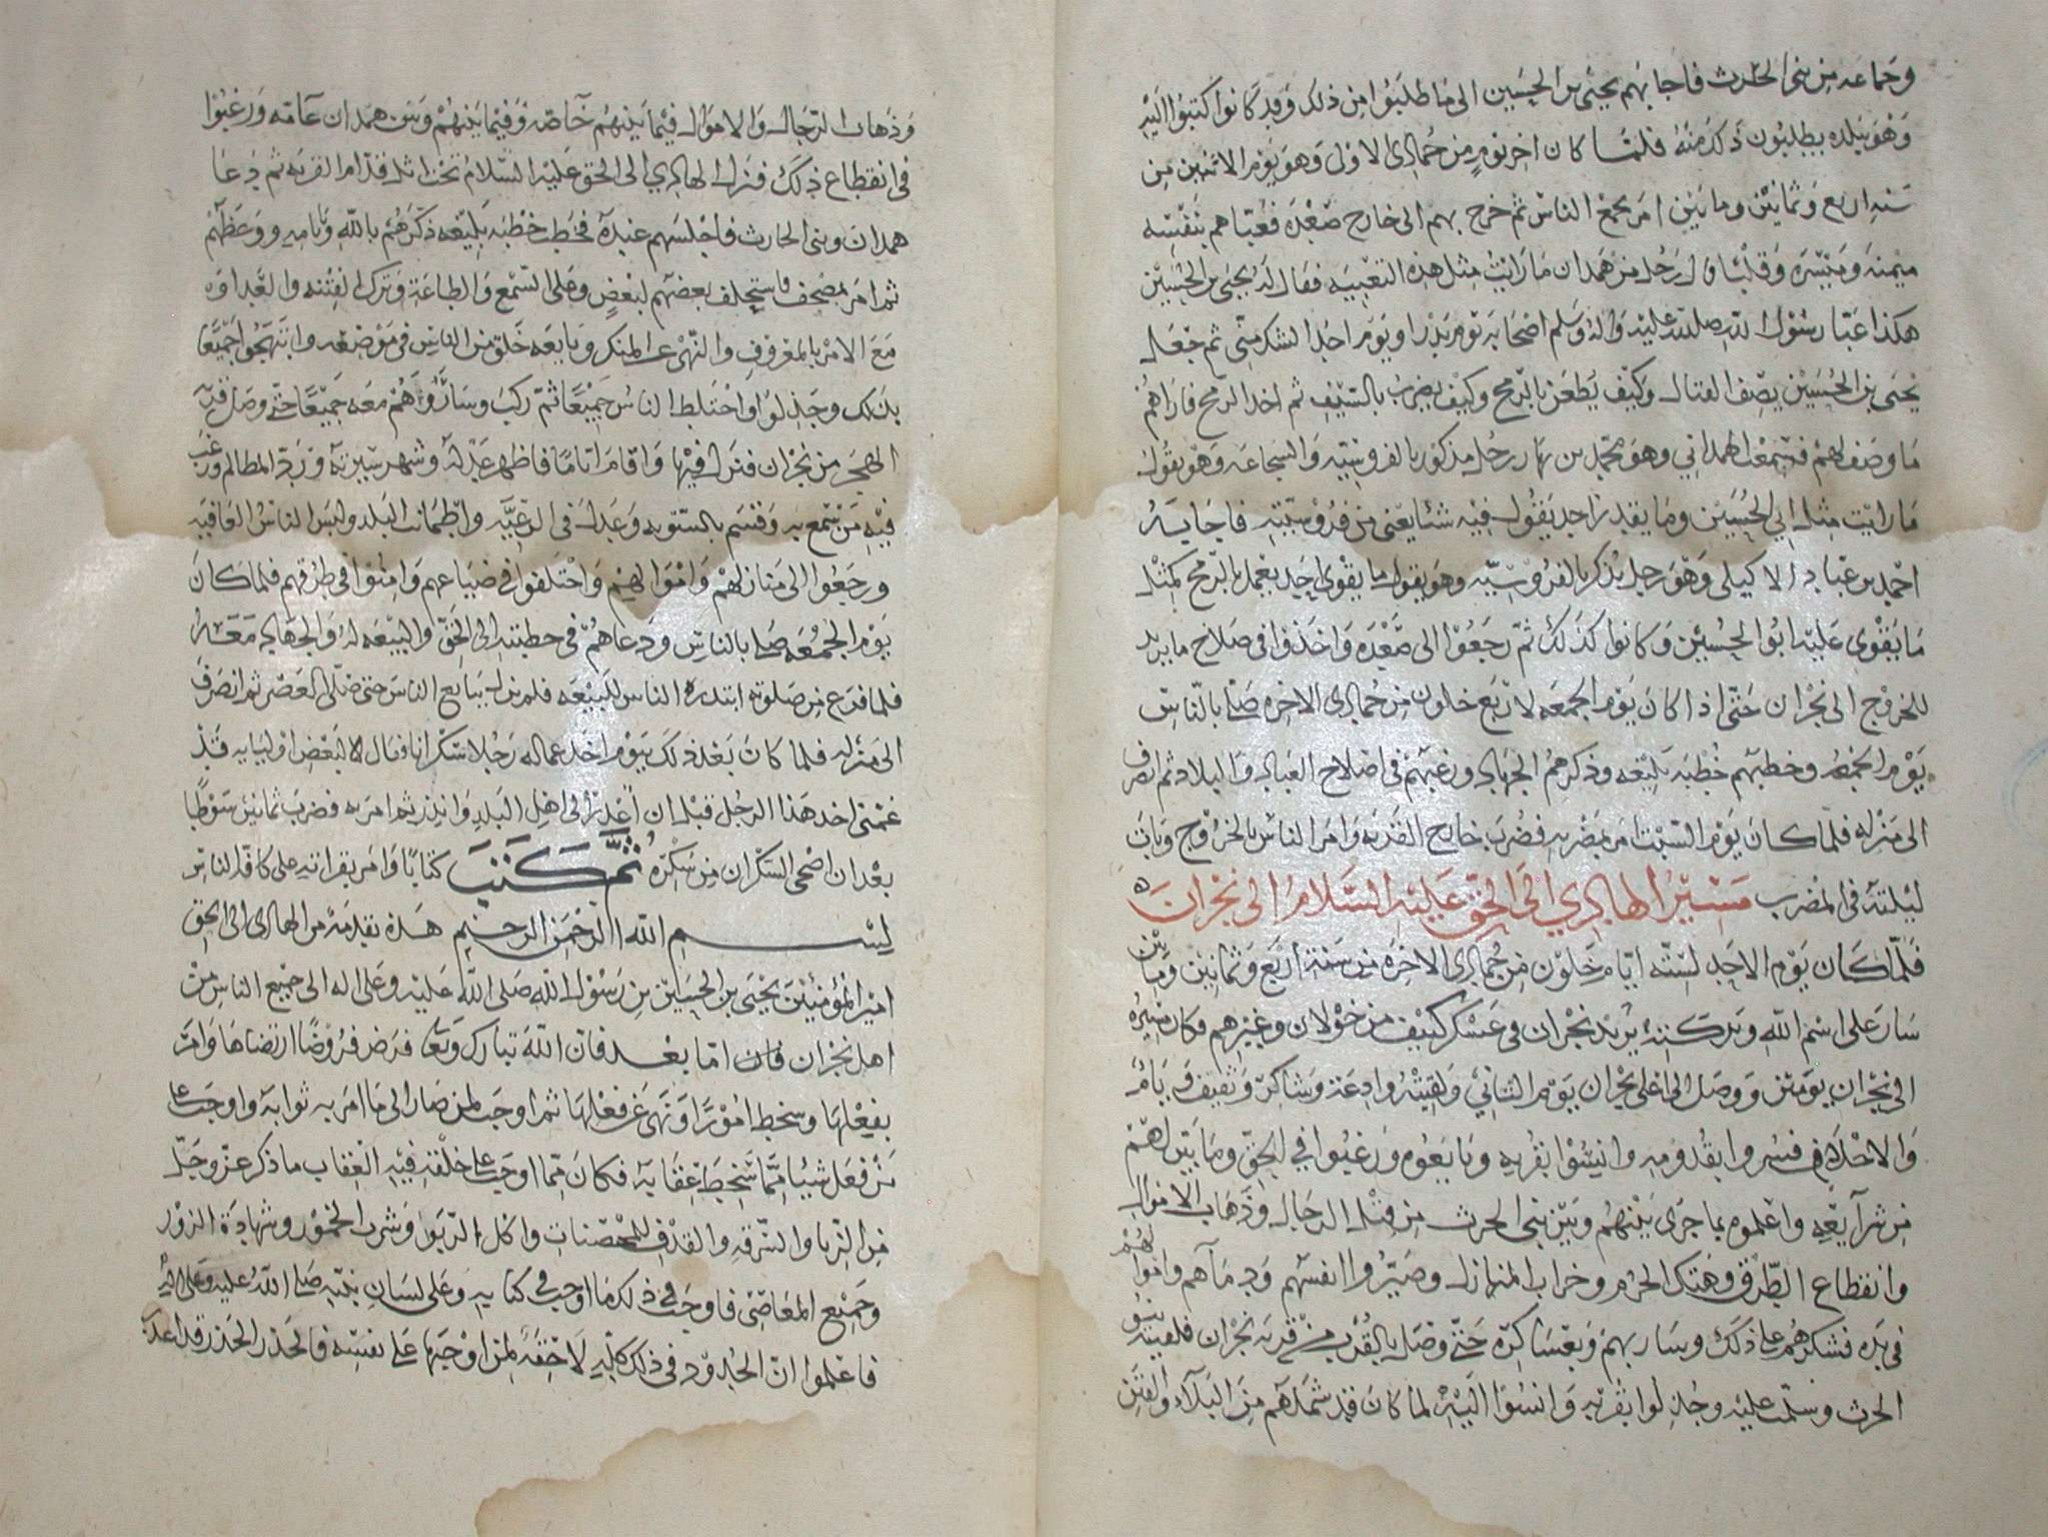 وجماعة من بني الحرث فاجابهم يحيى بن الحسين الى ما طلبوا من ذلك وقد كانوا كتبوا اليه
وهو ببلده يطلبون ذلك منه فلما كان اخر يوم من جمادى الاولى وهو يوم الاثنين من
سنه اربع وثمانين ومايتين امر بجمع الناس ثم خرج بهم الى خارج صعده فعباهم بنفسه
ميمنه وميسره وقلبا رجل من همدان ما رايت مثل هذه التعبيه فقال له يحيى بن الحسين
هكذا عبا رسول الله صلى الله عليه واله وسلم اصحابه يوم بدر ويوم احد ثم جعل
يحيى بن الحسين يصف القتال وكيف يطعن بالرمح وكيف يضرب بالسيف ثم اخذ الرمح فاراهم
ما وصف لهم فسمعت الهمداني وهو محمد بن رجل مذكور بالفروسيه والشجاعه وهو يقول
ما رايت مثل ابي الحسين وما يقدر احد يقول فيه شئا يعني من فروسيته فاجابه
احمد بن عباد الاكيلي وهو رجل يذكر بالفروسيه وهو يقول ما يقوى احد يعمل بالرمح كمثل
ما يقوى عليه ابو الحسين وكانوا كذلك ثم رجعوا الى صعده واخذوا في صلاح ما يريد
للخروج الى نجران حتى اذا كان يوم الجمعه لاربع خلون من جمادى الاخره صلى بالناس
يوم الجمعه وخطبهم خطبه بليغه وذكرهم الجهاد ورغبهم في اصلاح العباد والبلاد ثم انصرف
الى منزله فلما كان يوم السبت امر بمضربه فضرب خارج القريه وامر الناس بالخروج وبات
ليلته في المضرب مسير الهادي الى الحق عليه السلام الى نجران ه
فلما كان يوم الاحد لسته ايام خلون من جمادى الاخره من سنة اربع وثمانين ومايتين
سار على اسم الله وبركته يريد نجران في عسكر كثيف من خولان وغيرهم فكان مسيره
الى نجران يومين ووصل الى اعلى نجران يوم الثاني ولقيته وادعة وشاكر وثقيف ويام
والاحلاف فسروا بقدومه وانسوا بقربه وبايعوه ورغبوا في الحق وما بين لهم
من شرآيعه واعلموه بما جرى بينهم وبين بني الحرث من قتل الرجال وذهاب الاموال
وانقطاع الطرق وهتك الحرم وخراب المنازل وصيروا انفسهم ودمآهم واموالهم
في يده فشكرهم على ذلك وسار بهم وبعساكره حتى وصل بالقرب من قرية نجران فلقيته بنو
الحرث وسلمت عليه وجذلوا بقربه وانسوا اليه لما كان قد شملهم من البلآء والفتن
وذهاب الرجال والاموال فيما بينهم خآصه وفيما بينهم وبين همدان عآمه ورغبوا
في انقطاع ذلك فنزل الهادي الى الحق عليه السلام تحت قدام القريه ثم دعا
همدان وبني الحارث فاجلسهم عنده فخطب خطبه بليغه ذكرهم بالله وبايامه ووعظهم
ثم امر بمصحف فاستحلف بعضهم لبعض وعلى السمع والطاعة وترك الفتنه والعداوه
مع الامر بالمعروف والنهي عن المنكر وبايعه خلق من الناس في موضعه وابتهجوا جميعا
بذلك وجذلوا واختلط الناس جميعا ثم ركب وساروا هم معه جميعا حتى وصل قرية
الهجر من نجران فنزل فيها واقام اياما فاظهر عدله وشهر سيرته ورد المظالم ورغب
فيه من سمع به وقسم بالسويه وعدل في الرعيه واطمانت البلد ولبس الناس العافيه
ورجعوا الى منازلهم واموالهم واختلفوا في ضياعهم وامنوا في طرقهم فلما كان
يوم الجمعه صلى بالناس ودعاهم في خطبته الى الحق والبيعه له والجهاد معه
فلما فرغ من صلوته ابتدره الناس للبيعه فلم يزل يبايع الناس حتى صلى العصر ثم انصرف
الى منزله فلما كان بعد ذلك بيوم اخذ عماله رجلا سكرانا فقال لبعض اوليايه قد
غمني اخذ هذا الرجل قبل ان اعذر الى اهل البلد وانذر ثم امر به فضرب ثمانين سوطا
بعد ان اضحى السكران من سكره ثم كتب كتابا وامر بقراته على كافة الناس
بسم الله الرحمن الرحيم هذه تقدمة من الهادي الى الحق
امير المؤمنين يحيى بن الحسين بن رسول الله صلى الله عليه وعلى اله الى جميع الناس من
اهل نجران فان اما بعد فان الله تبارك وتعا فرض فروضا ارتضاها وامر
بفعلها وسخط امورا ونهى عن فعلها ثم اوجب لمن صار الى ما امر به ثوابه واوجب على
من فعل شيئا مما سخط عقابه فكان مما اوجب على خلقه فيه العقاب ما ذكر عز وجل
من الزنا والسرقه والقذف للمحصنات واكل الربوا وشرب الخمور وشهادة الزور
وجميع المعاصي فاوجب في ذلك ما اوجب في كتابه وعلى لسان نبيه صلى الله عليه وعلى اله
فاعلموا ان الحدود في ذلك كله لاحقة لمن اوجبها على نفسه فالحذر الحذر فقد اعذر